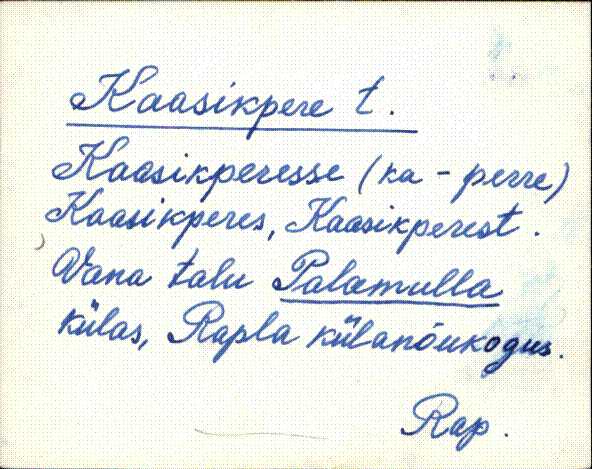 Kaasikpere t.
Kaasikperesse (ka - perre)
Kaasikperes, Kaasikperest.
Vana talu Palamulla
külas, Rapla külanõukogus.
Rap.